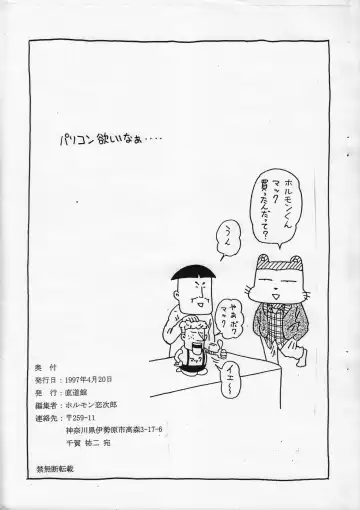 パソコン欲しいなぁ・・・・
ホルモンくん
マック
買ったんだって?
うん
やあボク
マック
マック
イエ〜
奥 付
発行日:1997年4月20日
発 行:直道館
編集者:ホルモン恋次郎
連絡先:〒259-11
神奈川県伊勢原市高森3-17-6
千賀 祐二 宛
禁無断転載